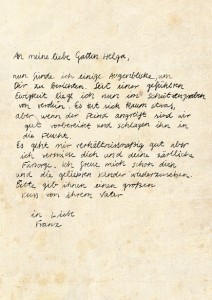 An meine liebe Gattin Helga,
nun finde ich einige Augenblicke um
Dir zu berichten. Seit einer gefühlten
Ewigkeit liege ich nun im Schützengraben
von Verdun. Es tut sich kaum etwas,
aber wenn der Feind angreift sind wir
gut vorbereitet und schlagen ihn in
die Flucht.
Es geht mir verhältnismäßig gut aber
ich vermisse dich und deine zärtliche
Fürsorge. Ich freue mich schon dich
und die geliebten Kinder wiederzusehen.
Bitte gib ihnen einen großen
Kuss von ihrem Vater
in Liebe
Franz